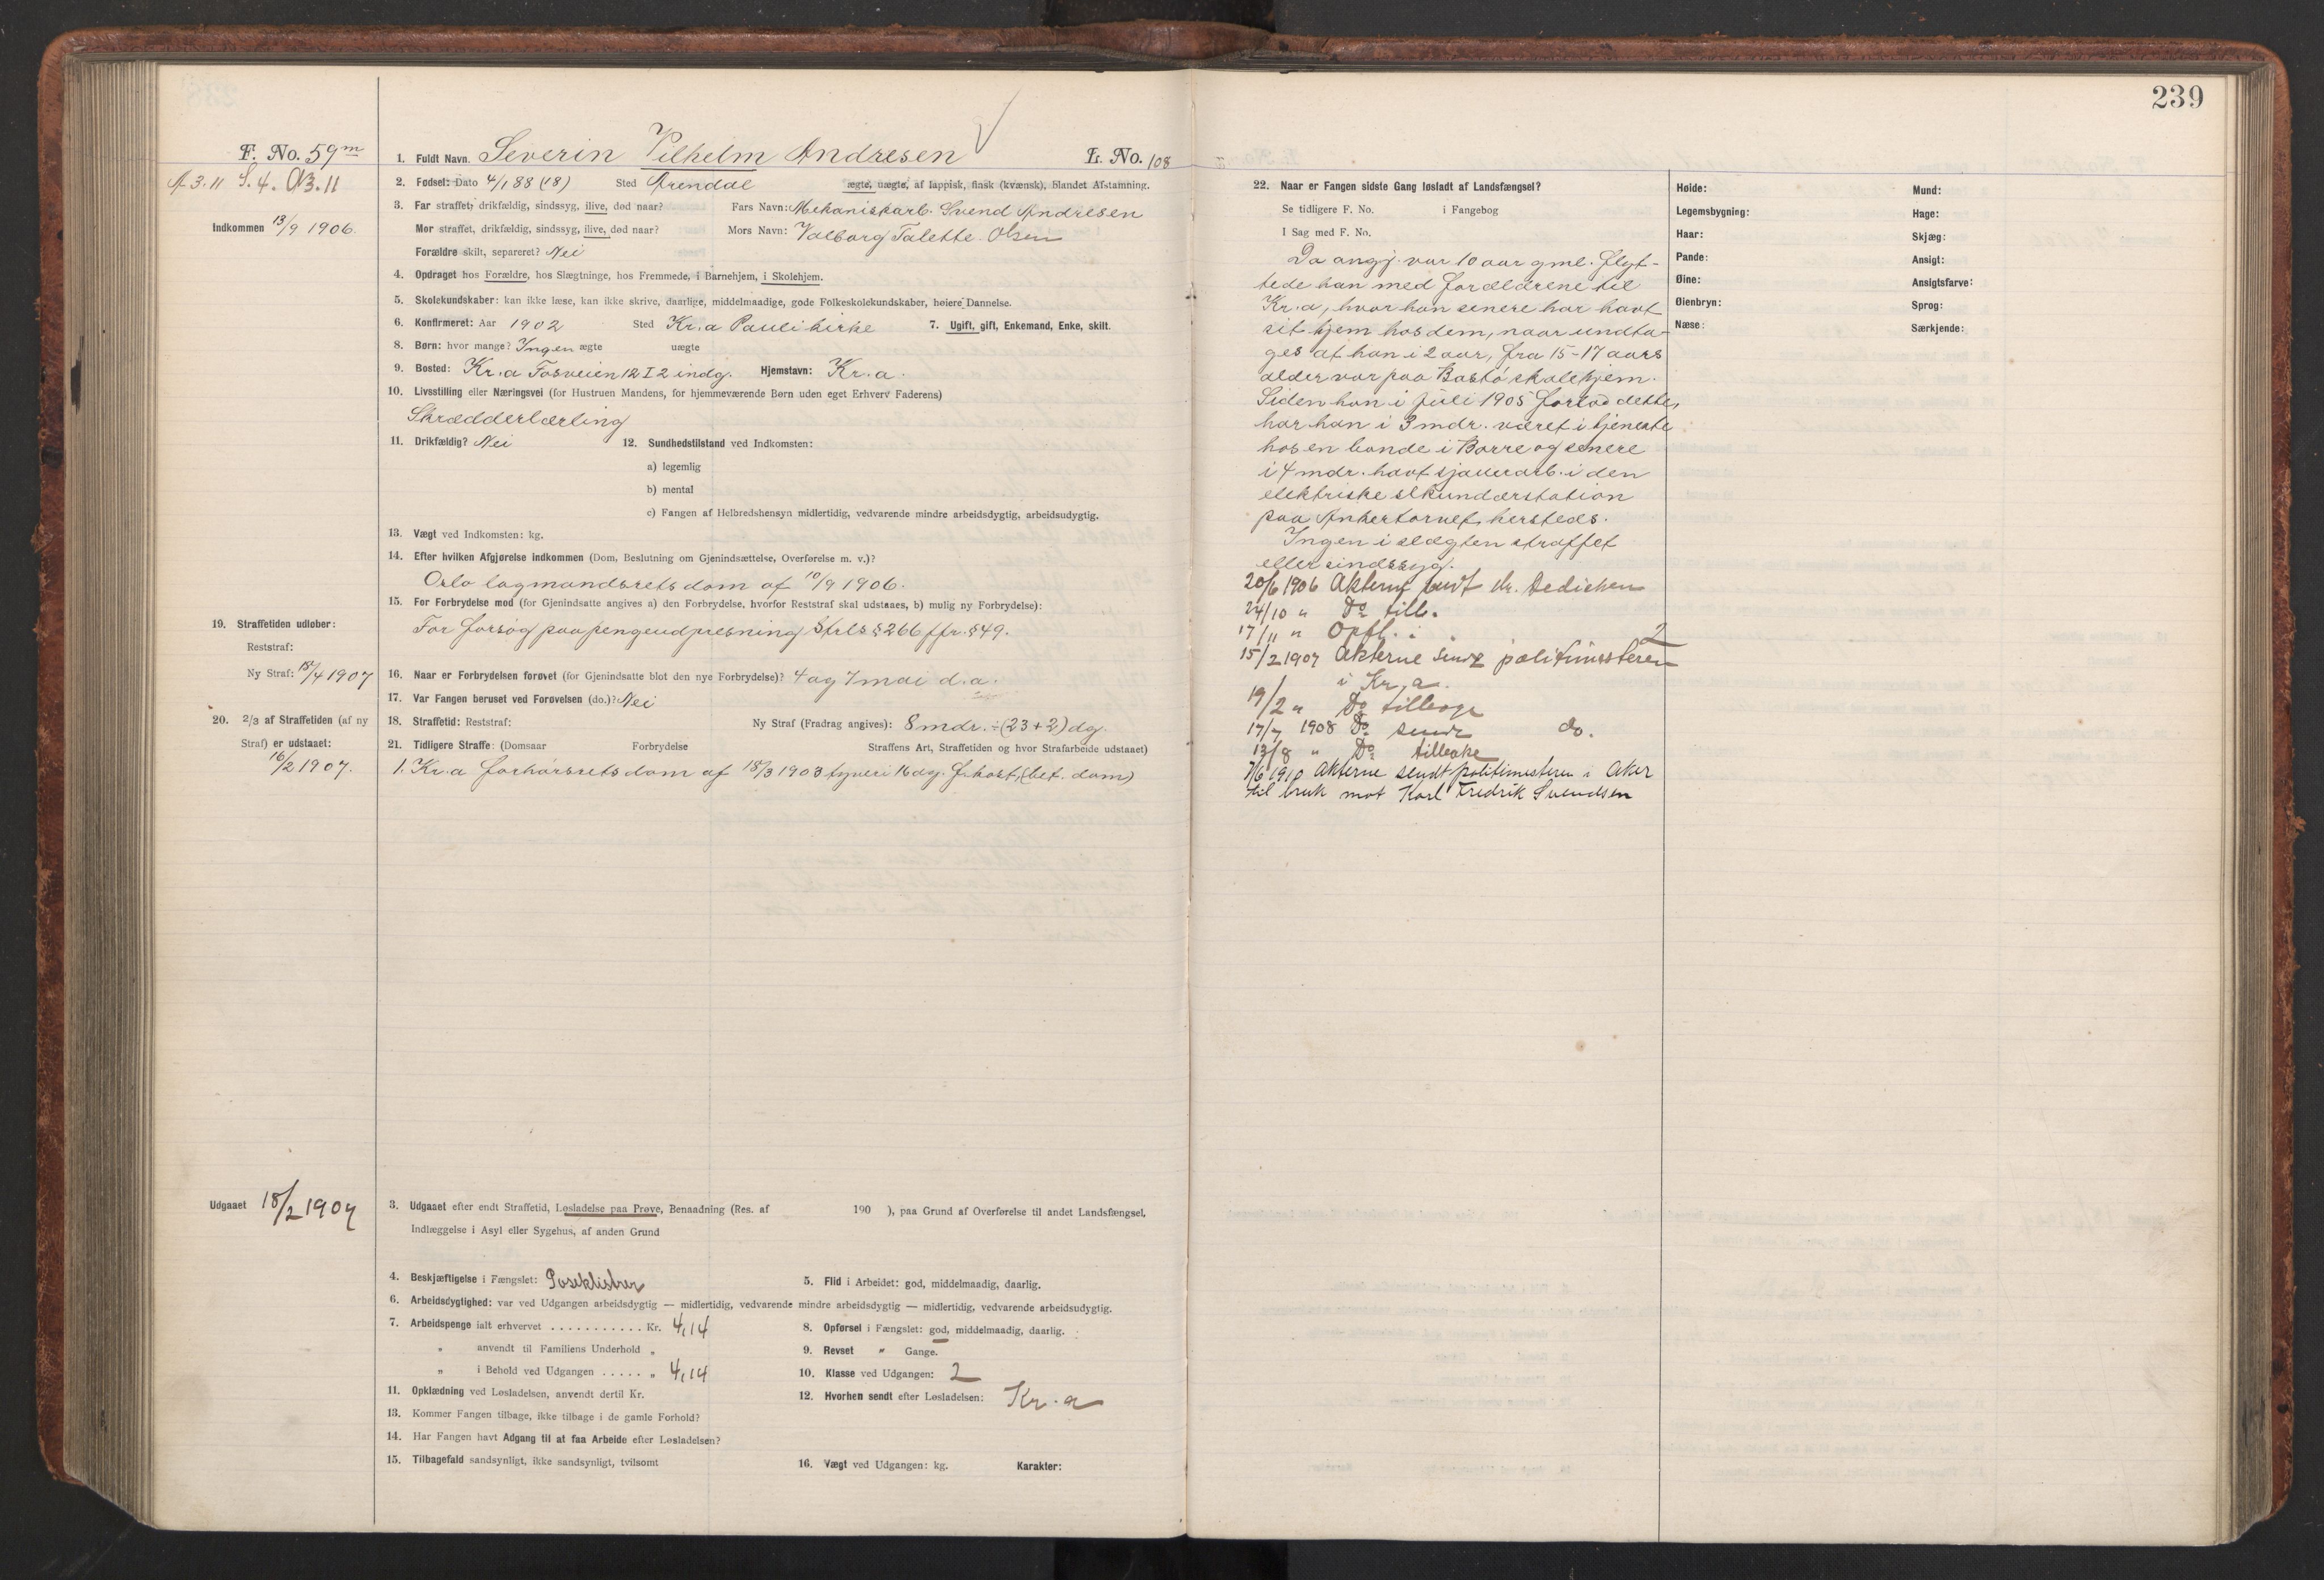 239
F. No. 59 m
A 3.11 S. 4. A3.11
Indkommen 13/9 1906.
19. Straffetiden udløber:
Reststraf:
Ny Straf: 18/4 1907
20. 2/3 af Straffetiden (af ny
Straf) er udstaaet:
16/2 1907.
Udgaaet 18/2 1907
1. Fuldt Navn. Severin Vilhelm Andresen L. No. 108
2. Fødsel: Dato 4/1 88 (18) Sted Arendal ægte, uægte, af lappisk, finsk (kvænsk), blandet Afstamning.
3. Far straffet, drikfældig, sindssyg, ilive, død naar? Fars Navn: Mekaniskarb. Svend Andresen
Mor straffet, drikfældig, sindssyg, ilive, død naar? Mors Navn: Valborg Talette Olsen
Forældre skilt, separeret? Nei
4. Opdraget hos Forældre, hos Slægtninge, hos Fremmede, i Barnehjem, i Skolehjem.
5. Skolekundskaber: kan ikke læse, kan ikke skrive, daarlige, middelmaadige, gode Folkeskolekundskaber, høiere Dannelse.
6. Konfirmeret: Aar 1902 Sted Kr.a Pauli kirke 7. Ugift, gift, Enkemand, Enke, skilt.
8. Børn: hvor mange? Ingen ægte uægte
9. Bosted: Kr.a Fosveien 12 I 2 indg. Hjemstavn: Kr.a.
10. Livsstilling eller Næringsvei (for Hustruen Mandens, for hjemmeværende Børn uden eget Erhverv Faderens)
Skrædderlærling
11. Drikfældig? Nei 12. Sundhedstilstand ved Indkomsten:
a) legemlig
b) mental
c) Fangen af Helbredshensyn midlertidig, vedvarende mindre arbeidsdygtig, arbeidsudygtig.
13. Vægt ved Indkomsten: kg.
14. Efter hvilken Afgjørelse indkommen (Dom, Beslutning om Gjenindsættelse, Overførelse m. v.)?
Oslo lagmandsrets dom af 10/9 1906.
15. For Forbrydelse mod (for Gjenindsatte angives a) den Forbrydelse, hvorfor Reststraf skal udstaaes, b) mulig ny Forbrydelse):
For forsøg paa pengeudpresning Strls § 266 jfr. § 49.
16. Naar er Forbrydelsen forøvet (for Gjenindsatte blot den nye Forbrydelse)? 4 og 7 mai d.a.
17. Var Fangen beruset ved Forøvelsen (do.)? Nei
18. Straffetid: Reststraf: Ny Straf (Fradrag angives): 8 mdr. ÷ (23 + 2) dg.
21. Tidligere Straffe: (Domsaar Forbrydelse Straffens Art, Straffetiden og hvor Strafarbeide udstaaet)
1. Kr.a forhørsrets dom af 18/3 1903 tyveri 16 dg. f. kost, (bet. dom)
3. Udgaaet efter endt Straffetid, Løsladelse paa Prøve, Benaadning (Res. af 190 ), paa Grund af Overførelse til andet Landsfængsel,
Indlæggelse i Asyl eller Sygehus, af anden Grund
4. Beskjæftigelse i Fængslet: Poseklistrer 5. Flid i Arbeidet: god, middelmaadig, daarlig.
6. Arbeidsdygtighed: var ved Udgangen arbeidsdygtig — midlertidig, vedvarende mindre arbeidsdygtig — midlertidig, vedvarende arbeidsudygtig.
7. Arbeidspenge ialt erhvervet . . . . . . . . . . . Kr. 4,14 8. Opførsel i Fængslet: god, middelmaadig, daarlig.
„ anvendt til Familiens Underhold „ 9. Revset " Gange.
„ i Behold ved Udgangen . . . . . „ 4,14 10. Klasse ved Udgangen: 2
11. Opklædning ved Løsladelsen, anvendt dertil Kr. 12. Hvorhen sendt efter Løsladelsen: Kr.a
13. Kommer Fangen tilbage, ikke tilbage i de gamle Forhold?
14. Har Fangen havt Adgang til at faa Arbeide efter Løsladelsen?
15. Tilbagefald sandsynligt, ikke sandsynligt, tvilsomt 16. Vægt ved Udgangen: kg. Karakter:
22. Naar er Fangen sidste Gang løsladt af Landsfængsel?
Se tidligere F. No. i Fangebog
I Sag med F. No.
Da angj. var 10 aar gml. flyt-
tede han med forældrene til
Kr.a, hvor han senere har havt
sit hjem hos dem, naar undta-
ges at han i 2 aar, fra 15-17 aars
alder var paa Bastø skolehjem.
Siden han i juli 1905 forlod dette,
har han i 3 mdr. været i tjeneste
hos en bonde i Borre og senere
i 4 mdr. havt sjauerarb. i den
elektriske sekundærstation
paa Ankertorvet hersteds.
Ingen i slægten straffet
eller sindssyg.
20/6 1906 Akterne sendt dr. Dedichen
24/10 " Do tilb.
17/11 " Opfl. i 2
15/2 1907 Akterne sendt politimesteren
i Kr.a.
19/2 " Do tilbage
17/7 1908 Do sendt do.
13/8 " Do tilbake
7/6 1910 Akterne sendt politimesteren i Aker
til bruk mot Karl Fredrik Svendsen
Høide:
Legemsbygning:
Haar:
Pande:
Øine:
Øienbryn:
Næse:
Mund:
Hage:
Skjæg:
Ansigt:
Ansigtsfarve:
Sprog:
Særkjende: